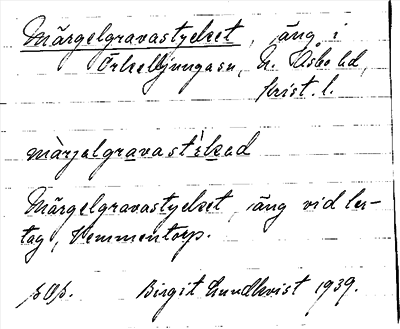 Märgelgravastycket, äng i
Örkelljungasn, N. Åsbo hd,
Krist. l.
màrjalgravastỳkad
Märgelgravastycket, äng vid ler-
tag, Vemmentorp.
Birgit Lundkvist 1939.